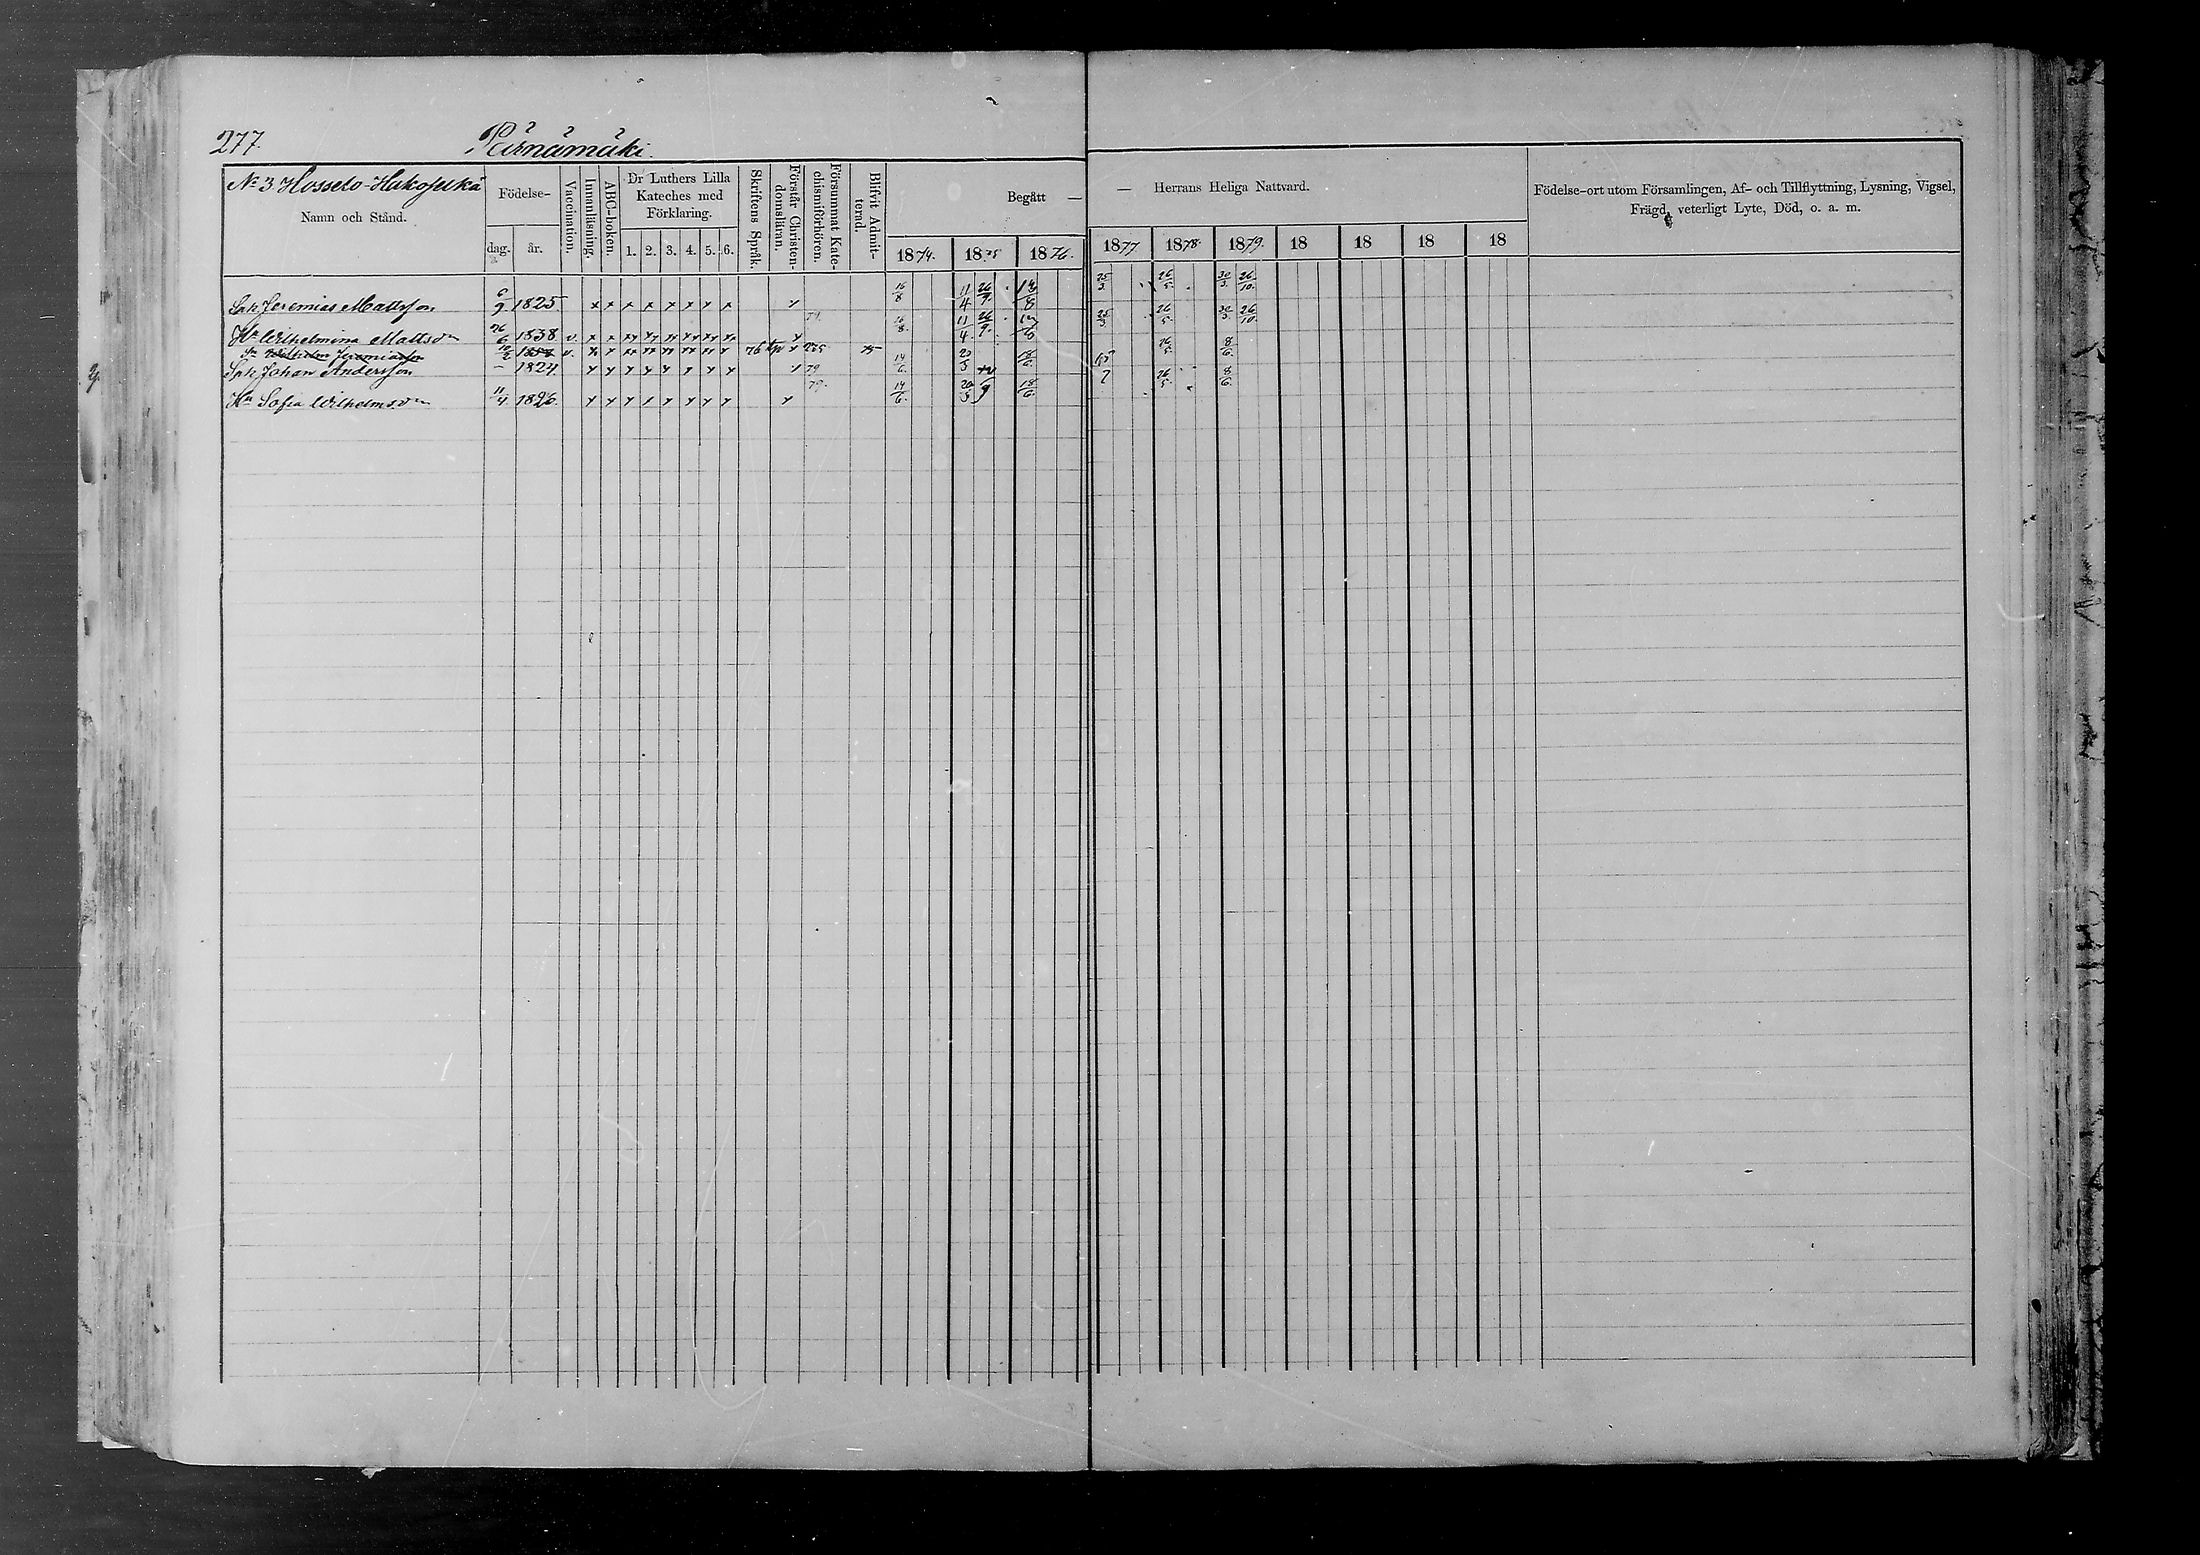 277. Pärnämäki.
№ 3 Hosseto-Hakoselkä
Namn och Stånd.
Födelse-
dag. år.
Vaccination.
Innanläsning.
ABC-boken.
Dr Luthers Lilla Kateches med Förklaring.
1. 2. 3. 4. 5. 6.
Skriftens Språk.
Förstår Christen-domsläran.
Försummat Kate-chismiförhören.
Blifvit Admit-terad.
Begått — — Herrans Heliga Nattvard.
1874. 1875 1876. 1877 1878. 1879. 18 18 18 18
Födelse-ort utom Församlingen, Af- och Tillflyttning, Lysning, Vigsel, Frägd, veterligt Lyte, Död, o. a. m.
Jeremias Mattsson 6/9 1825. x x x x x x x x x 16/8 11/4 26/9 18/8 25/3 26/5 30/3 26/10
Hu Wilhelmina Mattsdn 26/6 1838 v. 79. 16/8 11/4 26/9 25/3 26/5 30/3 26/10
Jeremiasson v. 76 75 26/5 8/6
Johan Andersson – 1824 79 14/6 20/5 18/6
Hu Sofia Wilhelmsdn 11/4 1826. 79. 14/6 20/5 18/6 26/5 8/6